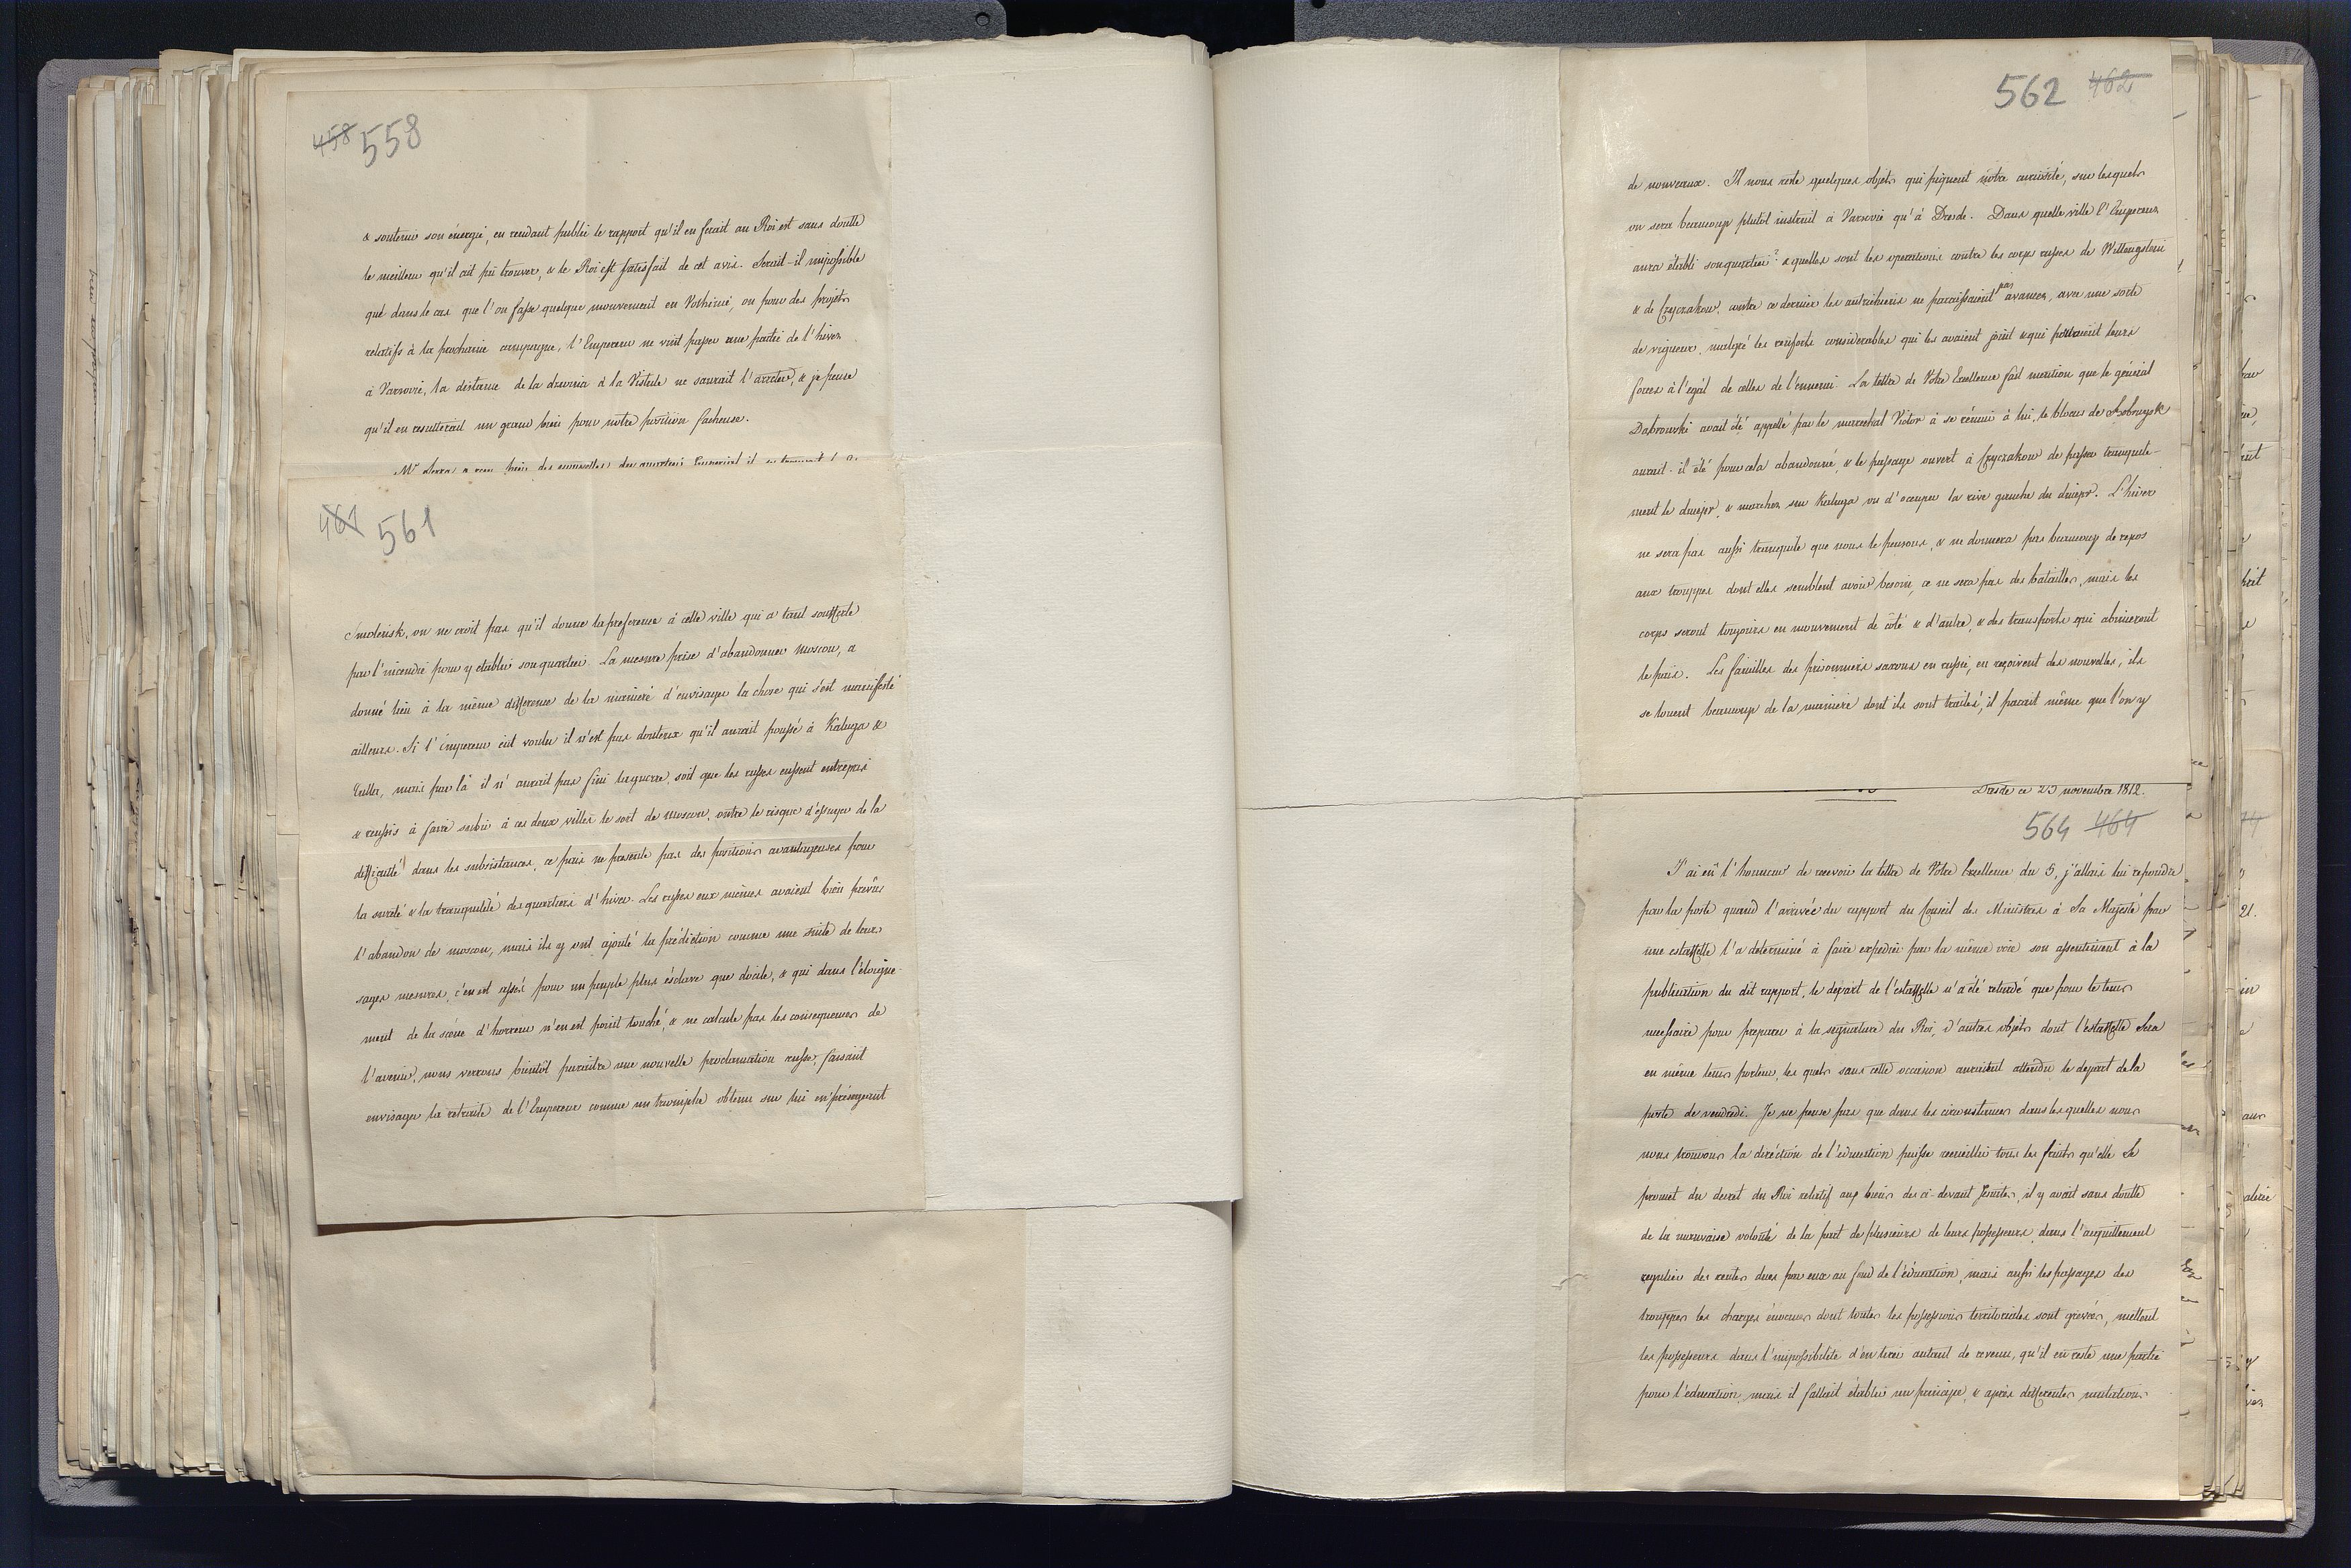 458 558
& soutenir son énergie, en rendant public le rapport qu'il en ferait au Roi est sans doutte
le meilleur qu'il ait pû trouver, & le Roi est satisfait de cet avis. Serait-il impossible
que dans le cas que l'on fasse quelque mouvement en Volhinie, ou pour des projets
relatifs à la prochaine campagne, l'Empereur ne vint passer une partie de l'hiver
à Varsovie, la distance de la à la Vistule ne saurait l'arreter, & je pense
qu'il en resulterait un grand bien pour notre position facheuse.
461 561
Smolensk, on ne croit pas qu'il donne la preference à cette ville qui a tant soufferte
par l'incendie pour y etablir son quartier. La mesure prise d'abandonner Moscou, a
donné lieu à la même difference de la manierè d'envisager la chose qui s'est manifesté
ailleurs. Si l'Empereur eût voulu il n'est pas douteux qu'il aurait poussé à Kaluga &
Tulla, mais par là il n'aurait pas fini la guerre, soit que les russes eussent entrepris
& reussis à faire subir à ces deux villes le sort de Moscou, outre le risque d'essuyer de la
difficulté dans les subsistances, ce païs ne presente pas des positions avantageuses pour
la sureté & la tranquilité des quartiers d'hiver. Les russes eux mêmes avaient bien prevûs
l'abandon de moscou, mais ils y ont ajouté la prédiction comme une suite de leurs
sages mesures, c'en est assés pour un peuple plus esclave que docile, & qui dans l'éloigne-
ment de la scène d'horreur n'en est point touché, & ne calcule pas les consequences de
l'avenir, nous verrons bientôt paraître une nouvelle proclamation russe, faisant
envisager la retraite de l'Empereur comme un triomphe obtenu sur lui en présageant
562 462
de nouveaux. Il nous reste quelques objets qui piquent notre curiosité, sur lesquels
on sera beaucoup plutôt instruit à Varsovie qu'à Dresde. Dans quelle ville l'Empereur
aura établi son quartier? & quelles sont les operations contre les corps russes de Wittengstein
& de Czyczakow, contre ce dernier les autrichiens ne paraissaient pas avancer, avec une sorte
de vigueur, malgré les renforts considerables qui les avaient joint & qui portaient leurs
forces à l'egal de celles de l'ennemi. La lettre de Votre Excellence fait mention que le général
Dabrowski avait été appellé par le marechal Victor à se réunir à lui, le blocus de Bobruysk
aurait-il été pour cela abandonné, & le passage ouvert à Czyczakow de passer tranquile-
ment le dnieper, & marcher sur Kaluga ou d'occuper la rive gauche du dnieper. L'hiver
ne sera pas aussi tranquile que nous le pensons, & ne donnera pas beaucoup de repos
aux trouppes dont elles semblent avoir besoin, ce ne sera pas des batailles, mais les
corps seront toujours en mouvement de côté & d'autre, & des transports qui abimeront
le païs. Les familles des prisonniers saxons en russie, en reçoivent des nouvelles, ils
se louent beaucoup de la maniere dont ils sont traités, il parait même que l'on y
Dresde ce 23 novembre 1812.
564 464
J'ai eû l'honneur de recevoir la lettre de Votre Excellence du 5, j'allais lui repondre
par la poste quand l'arrivée du rapport du Conseil des Ministres à Sa Majesté par
une estaffette l'a determiné à faire expedier par la même voie son assentiment à la
publication du dit rapport, le depart de l'estaffette n'a été retardé que pour le tems
necessaire pour preparer à la signature du Roi, d'autres objets dont l'estaffette sera
en même tems porteur, les quels sans cette occasion auraient attendu le depart de la
poste de vendredi. Je ne pense pas que dans les circonstances dans les quelles nous
nous trouvons la diréction de l'education puisse recueillir tous les fruits qu'elle se
promet du decret du Roi relatif aux biens des ci-devant Jesuites, il y avait sans doutte
de la mauvaise volonté de la part de plusieurs de leurs possesseurs dans l'acquittement
regulier des rentes dues par eux au fond de l'éducation, mais aussi les passages des
trouppes les charges énormes dont toutes les possessions territoriales sont grevées, mettent
les possesseurs dans l'impossibilité d'en tirer autant de revenu, qu'il en reste une partie
pour l'education, mais il fallait établir un principe, & après differentes mutations